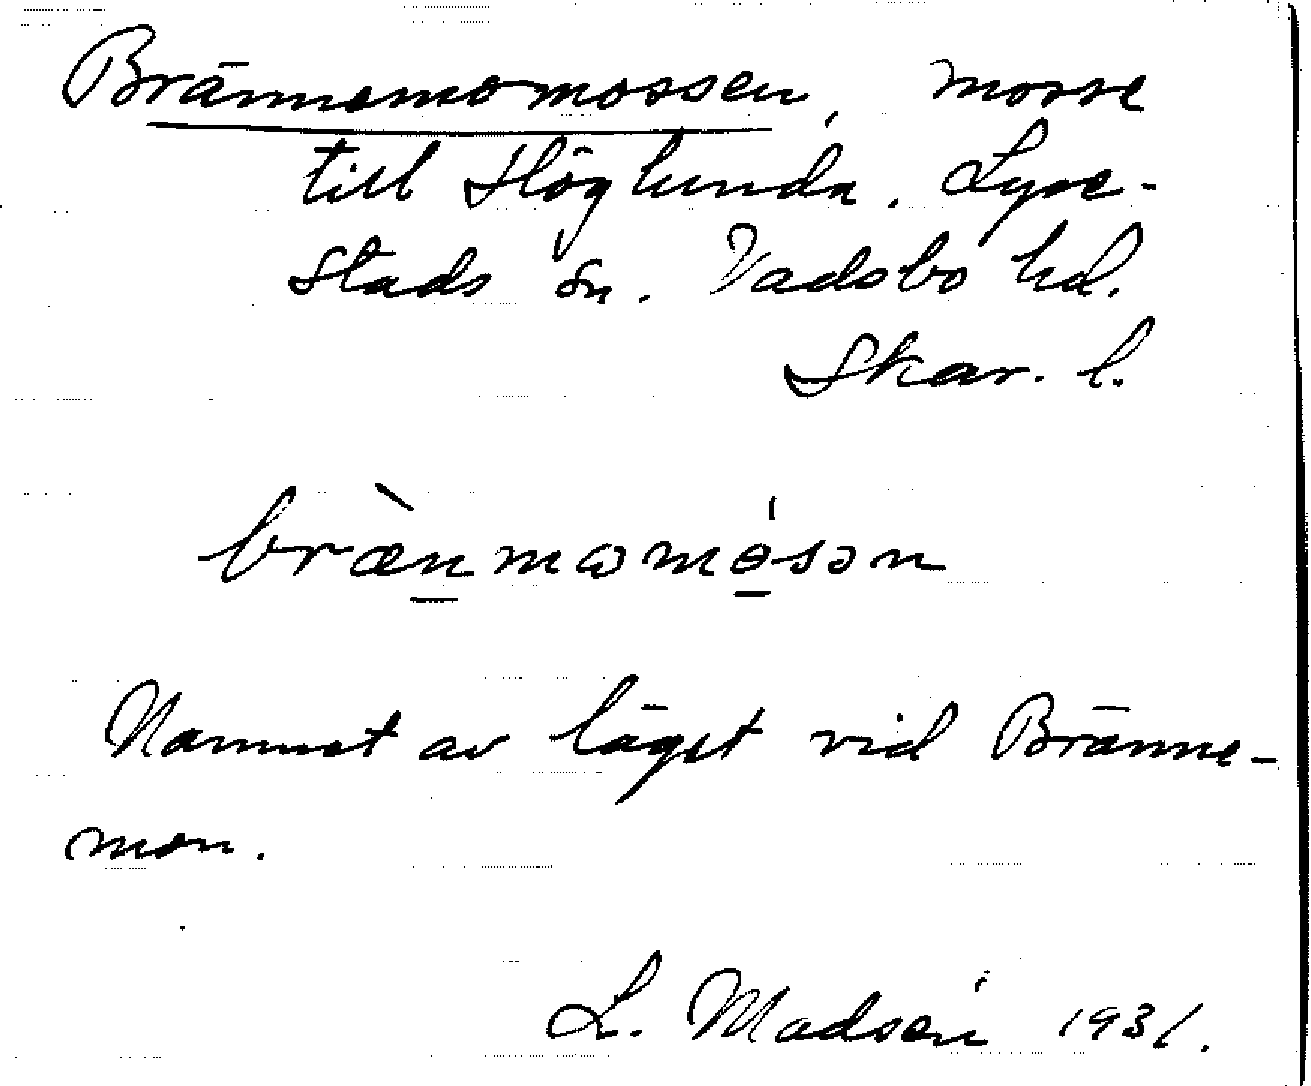 Brännemomossen, mosse
till Höglunda. Lyre-
stads sn. Vadsbo hd.
Skar. l.
bræ̀nmωmɵ́sən
Namnet av läget vid Bränne-
mon.
L. Madsén 1931.